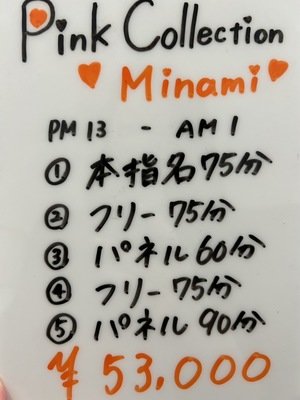 Pink Collection
Minami
PM 13 - AM 1
① 本指名 75分
② フリー 75分
③ パネル 60分
④ フリー 75分
⑤ パネル 90分
¥ 53,000